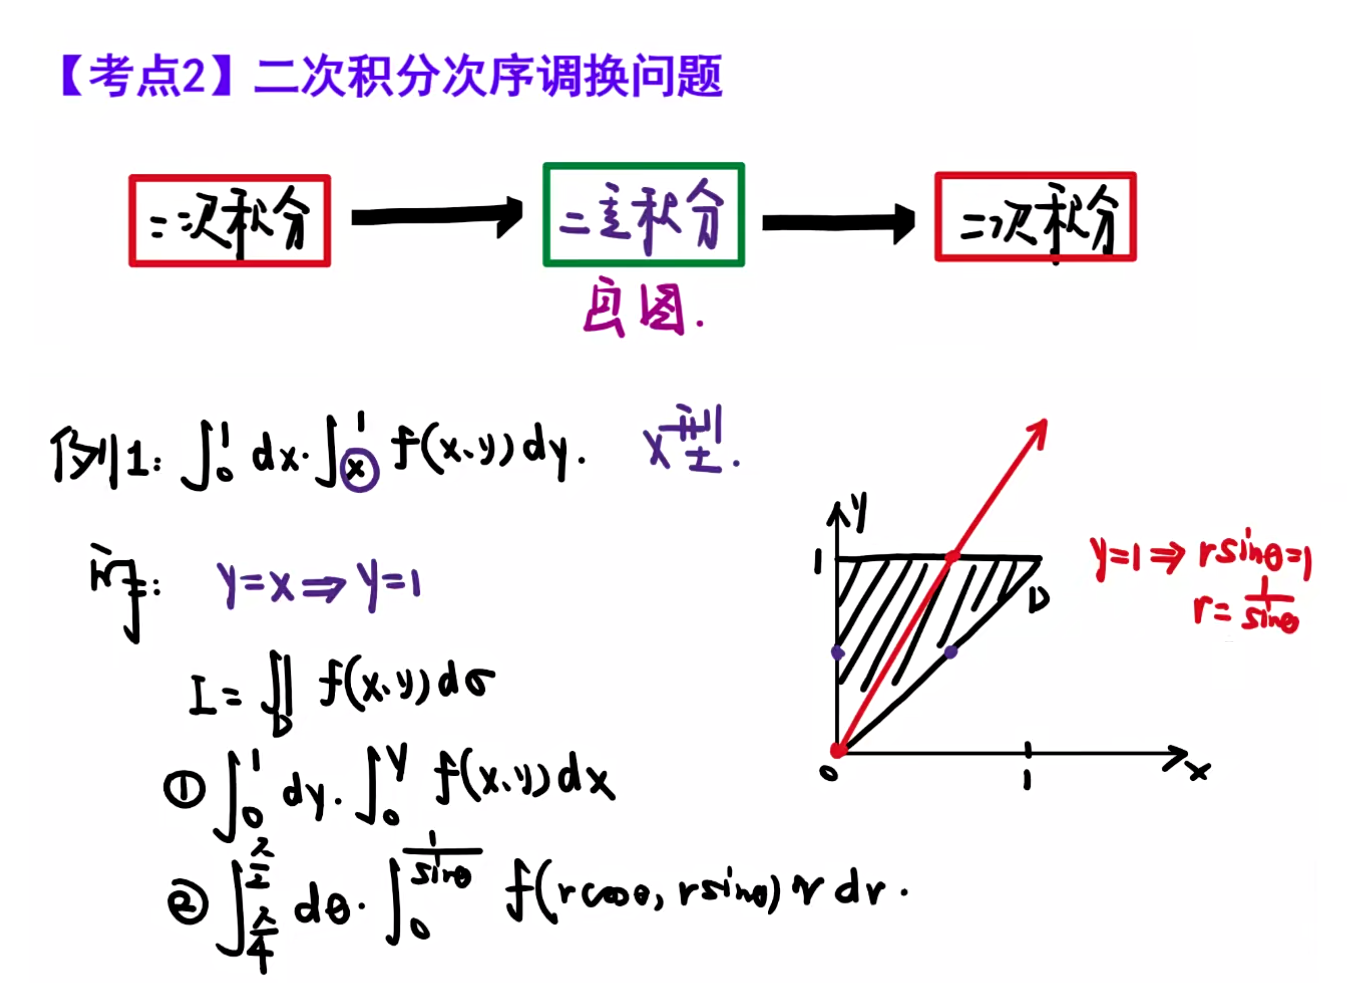 【考点2】二次积分次序调换问题
二次积分 二重积分 二次积分
画图.
例1: ∫₀¹ dx·∫ₓ¹ f(x,y)dy. x型.
解: y=x⇒y=1
I=∬_D f(x,y)dσ
① ∫₀¹ dy·∫₀^y f(x,y)dx
② ∫_{π/4}^{π/2} dθ·∫₀^{1/sinθ} f(rcosθ, rsinθ) r dr.
y
1
D
0
1
x
y=1⇒rsinθ=1
r=1/sinθ